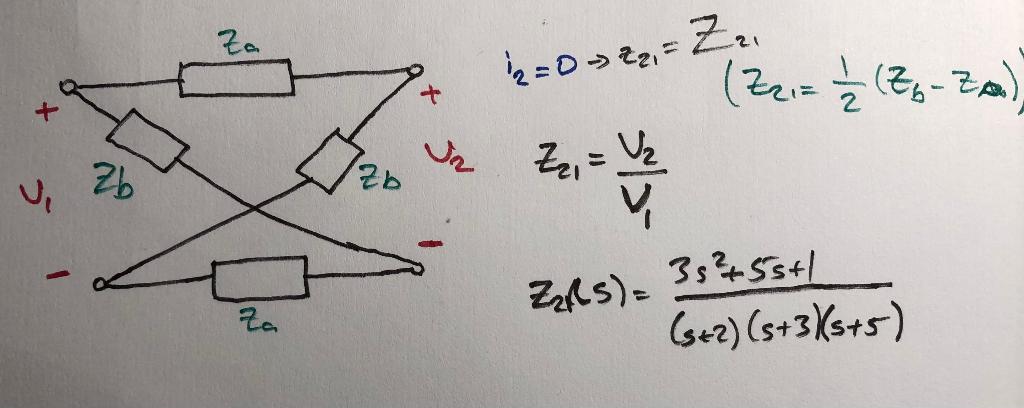 Za
+
+
Zb
Zb
U1
U2
-
-
Za
i2 = 0 → z21 = Z21
(Z21 = 1/2 (Zb - Za))
Z21 = U2/U1
Z21(s) = 3s²+5s+1 / (s+2)(s+3)(s+5)